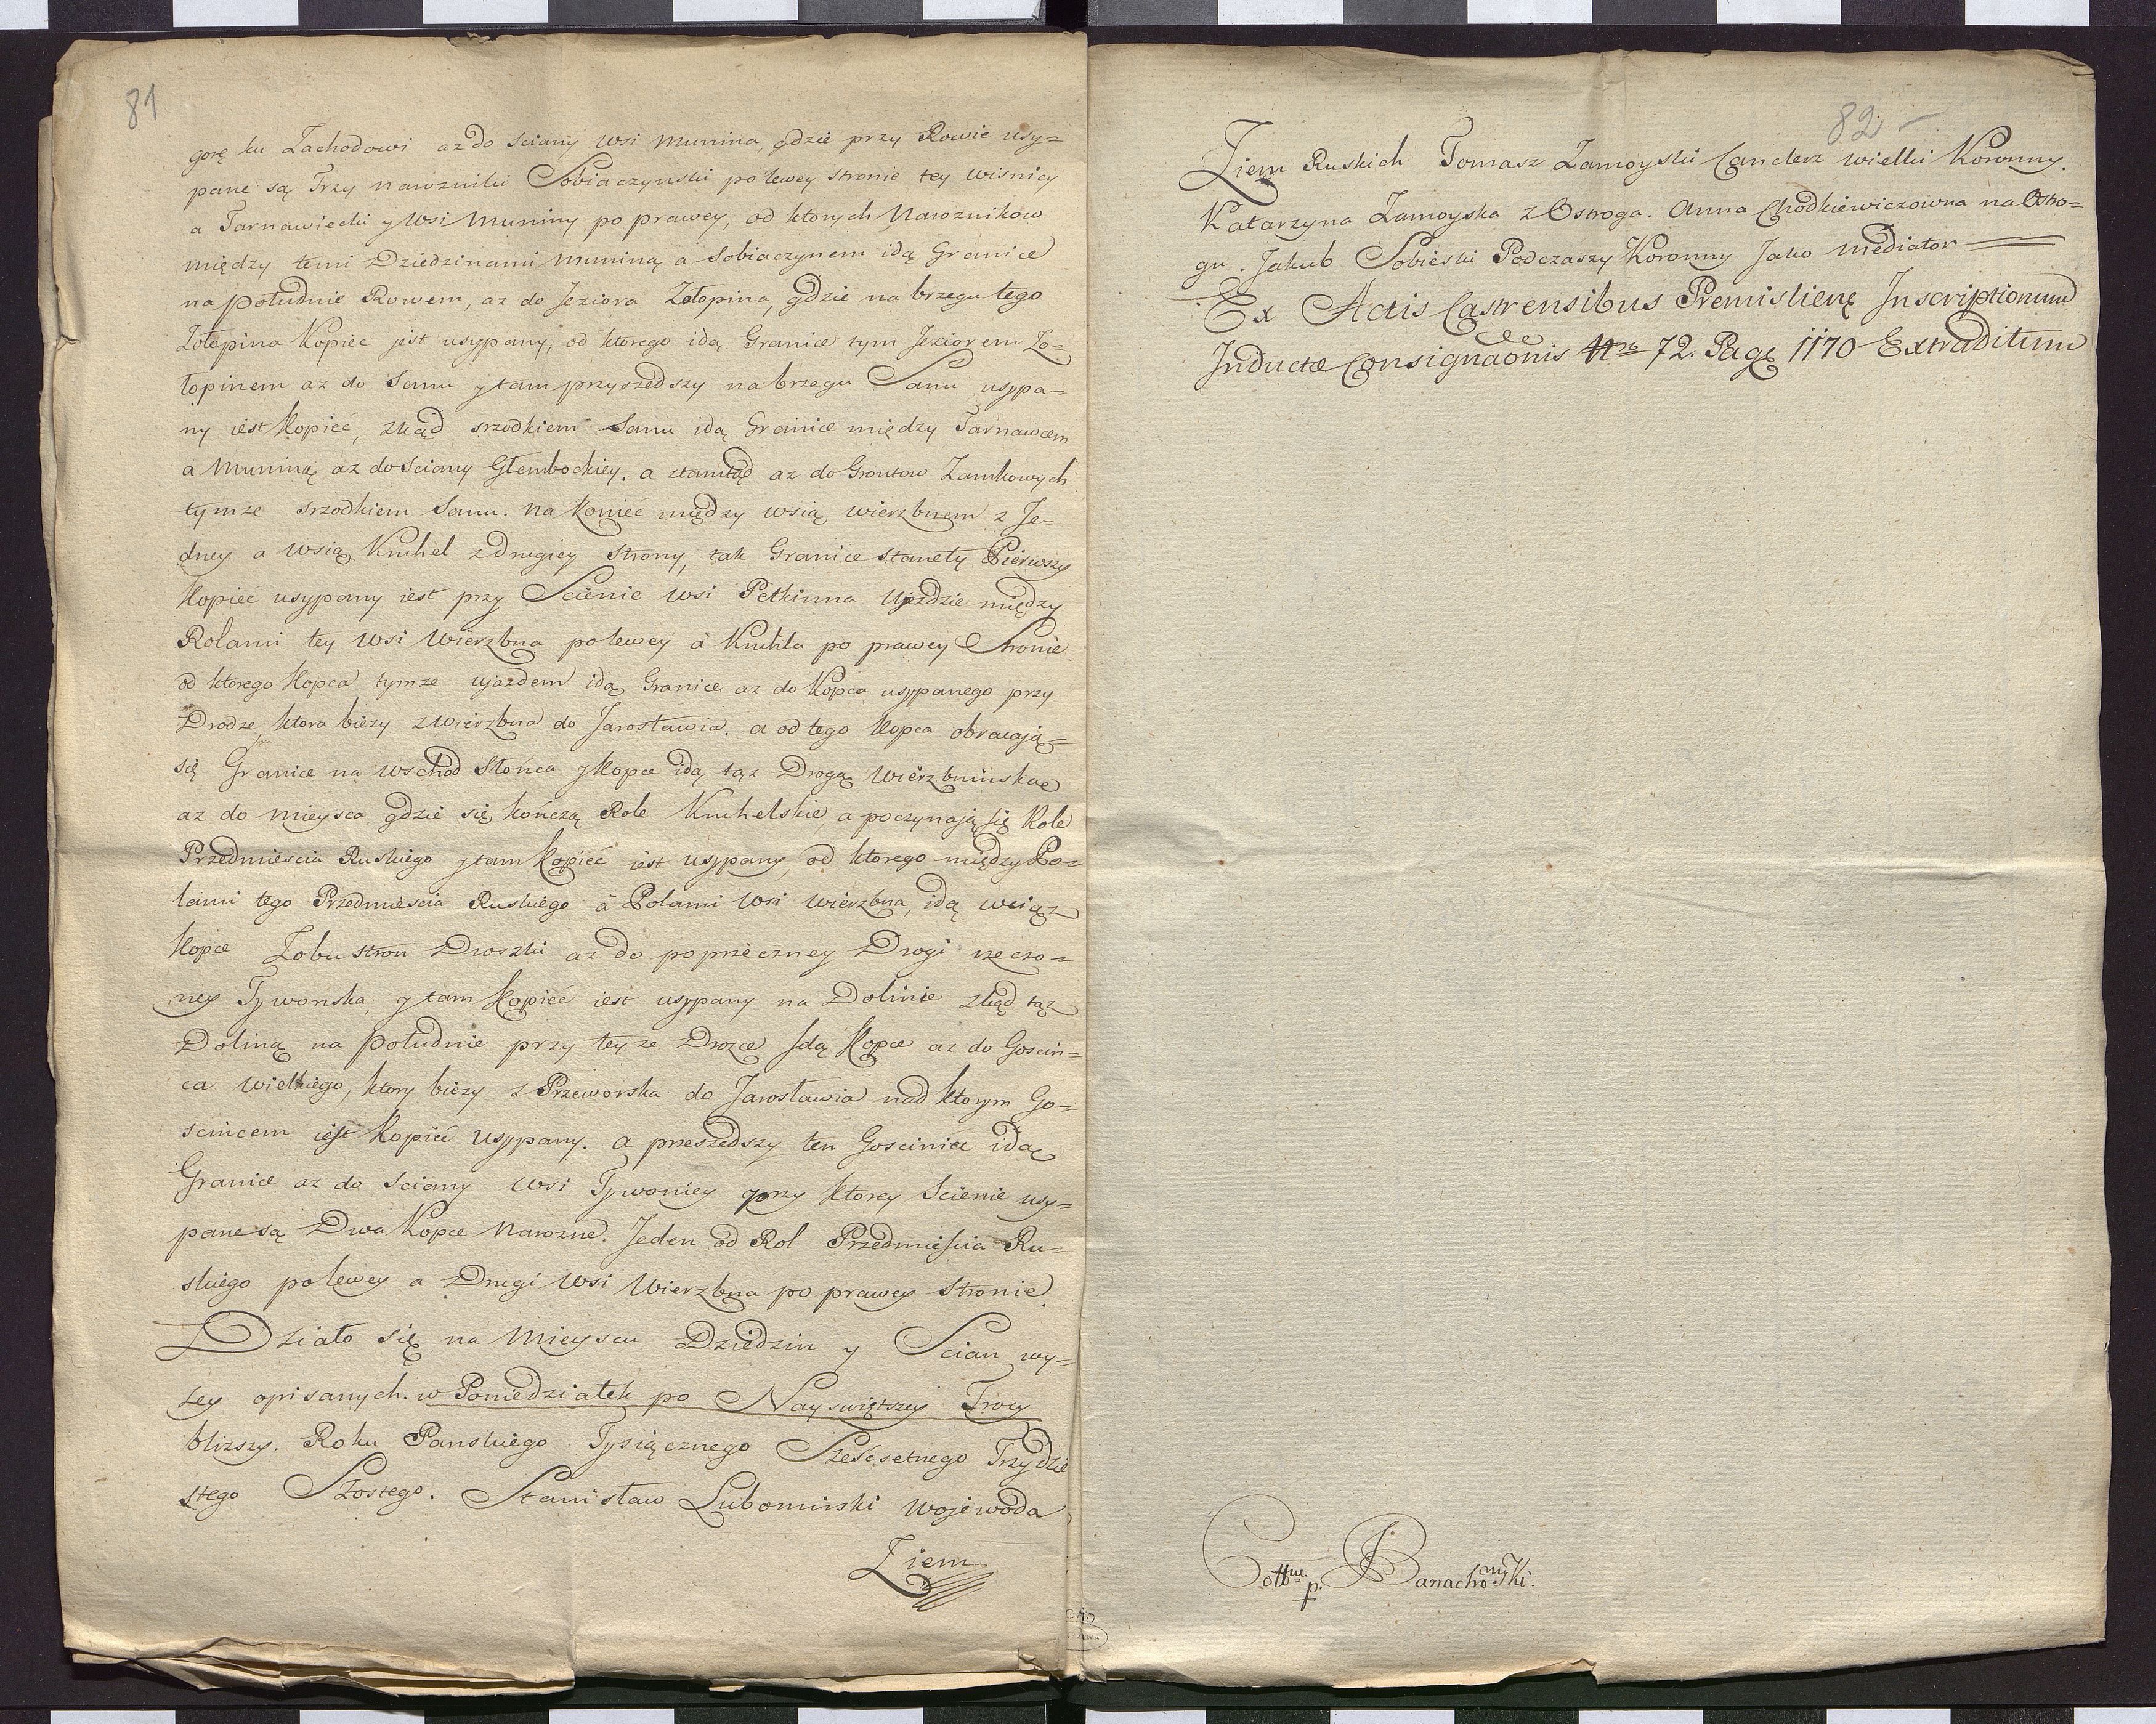 81
gorę ku Zachodowi az do Sciany wsi Munina, gdzie przy Rowie usy=
pane są Trzy naroznilki Sobiaczynski po lewey stronie tey wisnicy
a Tarnawiecki y wsi Muniny po prawey, od ktorych Naroznikow
między temi Dziedzinami Muniną a Sobiaczynem idą Granice
na południe Rowem, az do Jeziora Zołopina, gdzie na brzegu tego
Zołopina Kopiec jest usypany, od ktorego idą Granice tym Jeziorem Zo=
łopinem az do Sanu y tam przyszedszy na brzegu Sanu usypa=
ny iest Kopiec, zkąd srzodkiem Sanu idą Granice między Tarnawcem
a Muniną az do Sciany Głembockiey. a ztamtąd az do Grontow Zamkowych
tymze srzodkiem Sanu. na Koniec między wsią wierzbnem z Je=
dney a wsią Kruhel z drugiey Strony, tak Granice stanęły Pierwszy
Kopiec usypany iest przy Scienie wsi Pełkinna Ujezdzie między
Rolami tey wsi Wierzbna po lewey á Kruhla po prawey Stronie
od ktorego Kopca tymze ujazdem idą Granice az do Kopca usypanego przy
Drodze, ktora biezy z Wierzbna do Jarosławia. a od tego Kopca obracają=
się Granice na wschod Słońca y Kopce idą tąz Drogą Wierzbninską
az do mieysca gdzie się kończą Role Kruhelskie, a poczynają się Role
Przedmiescia Ruskiego y tam Kopiec iest usypany, od ktorego między Po=
lami tego Przedmiescia Ruskiego á Polami wsi wierzbna, idą wciąz
Kopce Zobu stron Droszki az do poprzeczney Drogi rzeczo=
ney Tywonska, y tam Kopiec iest usypany na Dolinie zkąd tąz
Doliną na południe przy teyze Drozce Idą Kopce az do Goscin=
ca wielkiego, ktory biezy z Przeworska do Jarosławia nad ktorym Go=
scincem iest Kopiec usypany. a przeszedszy ten Gosciniec idą
Granice az do Sciany wsi Tywoniey przy ktorey Scienie usy=
pane są Dwa Kopce Narozne. Jeden od Rol Przedmiescia Ru=
skiego po lewey a Drugi wsi Wierzbna po prawey Stronie.
Działo się na Mieyscu Dziedzin y Scian wy=
zey opisanych. w Poniedziałek po Nayswiętszey Trocy
blizszy. Roku Panskiego Tysiącznego Szescsetnego Trzydzie
stego Szostego. Stanisław Lubomirski Wojewoda
Ziem
82
Ziem Ruskich Tomasz Zamoyski Canclerz wielki Koronny.
Katarzyna Zamoyska z Ostroga. Anna Chodkiewiczowna na Ostro=
gu. Jakub Sobieski Podczaszy Koronny Jako Mediator
Ex Actis Castrensibus Premislienę Inscriptionum
Inductæ Consignaõnis Nro 72. Pagę 1170 Extraditum
Collm. p. Banachowski.